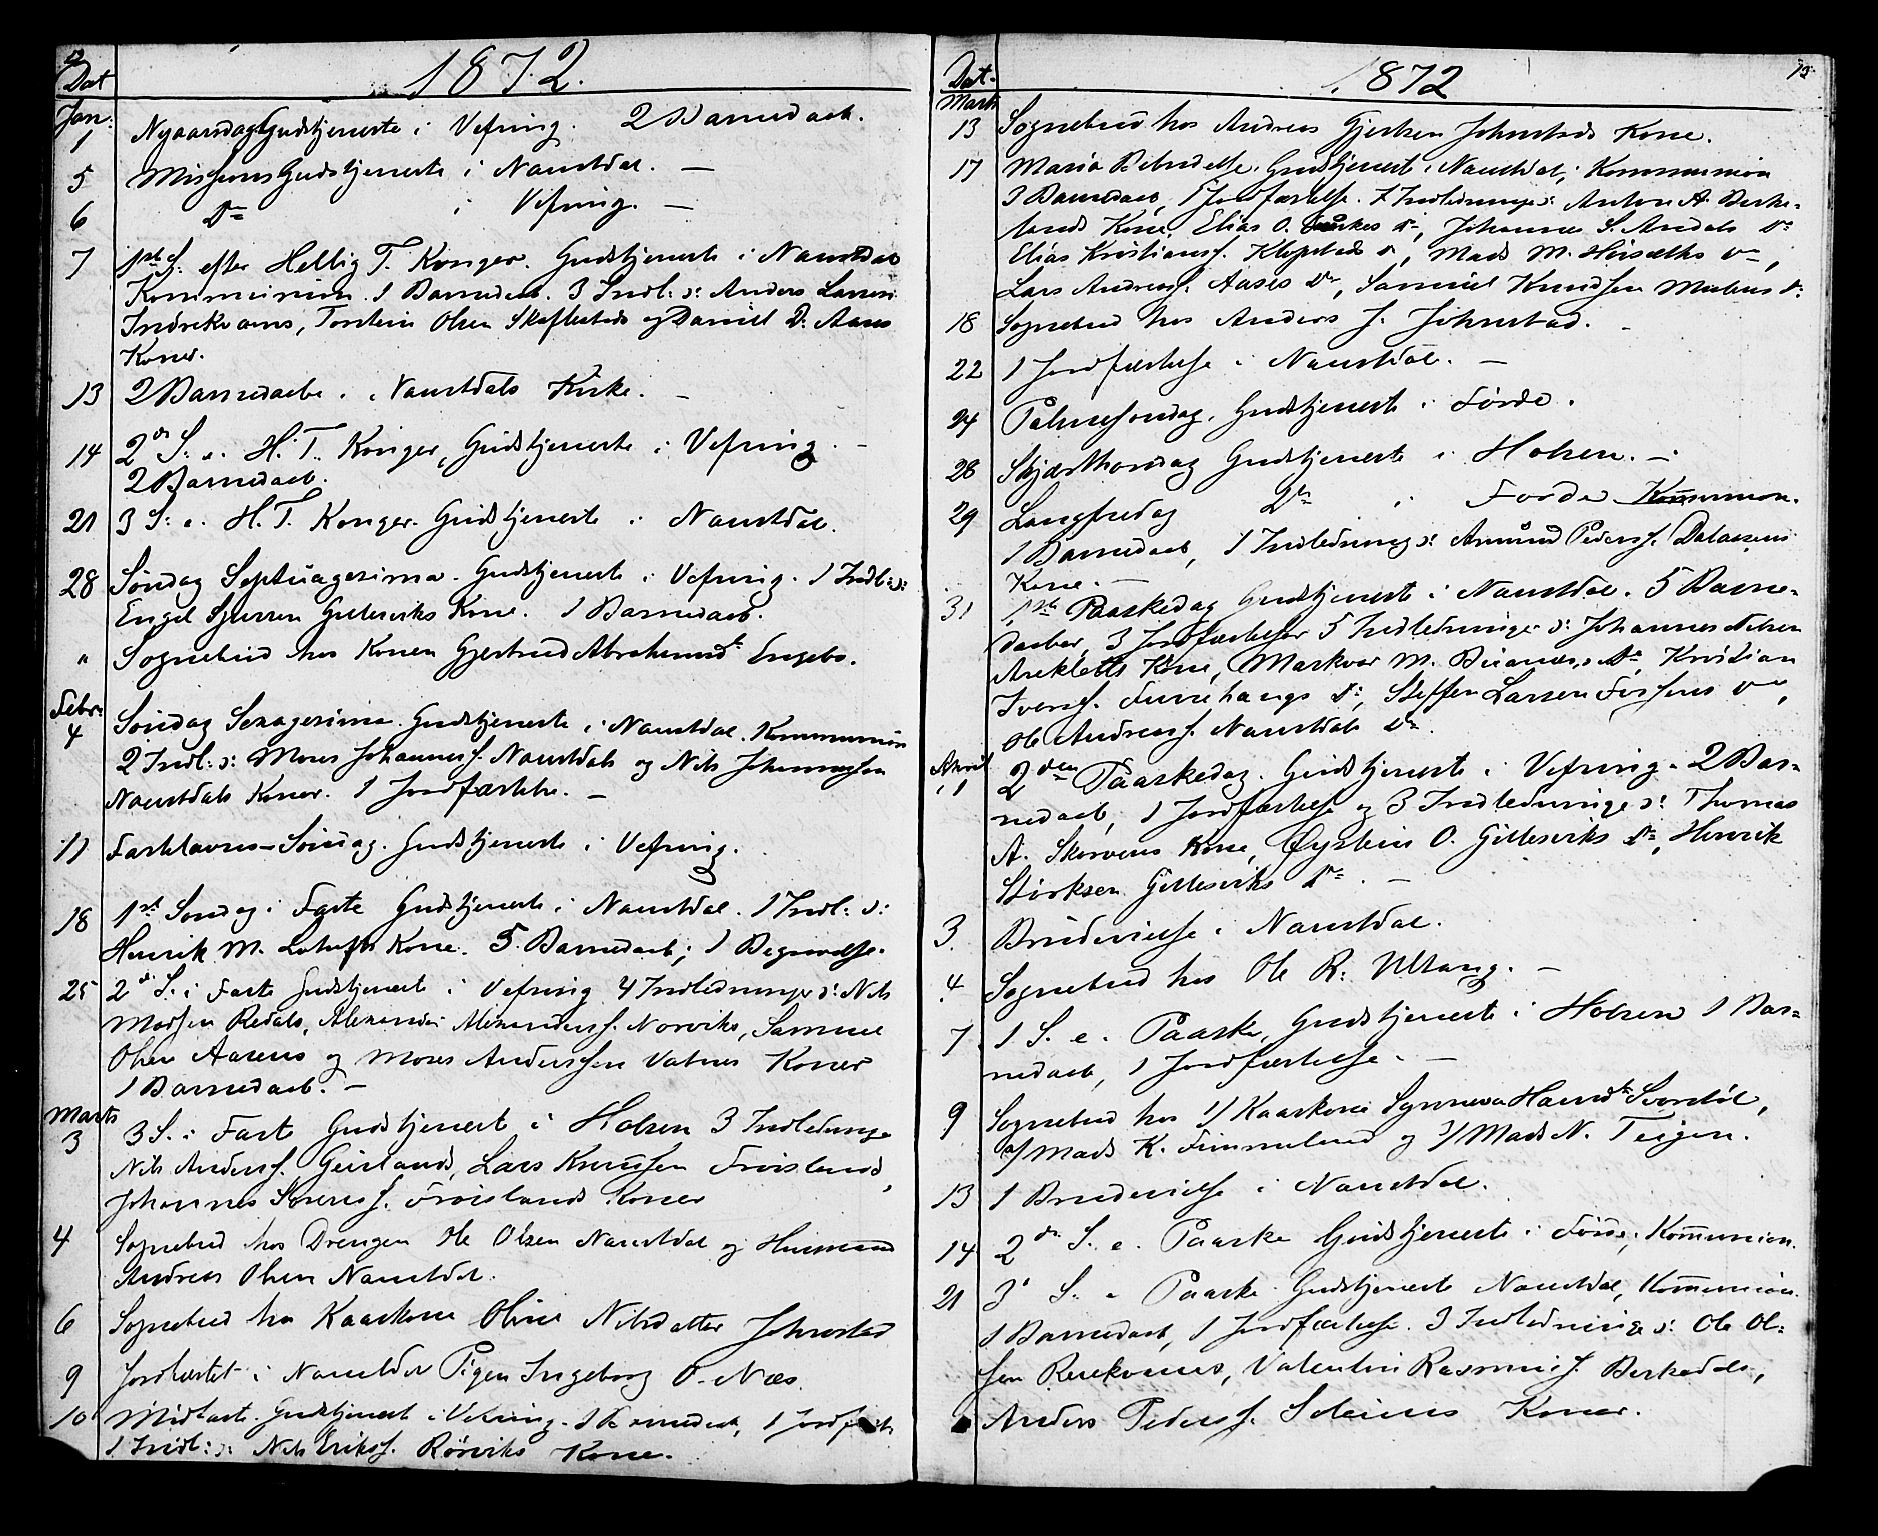 Dat
1872.
Jan:
1 Nyaarsdag Gudstjeneste i Vefring. 2 Barnedaab.
5 Missions Gudstjeneste i Naustdal. —
6 Do i Vefring. —
7 1ste S. efter Hellig T. Konger. Gudstjeneste i Naustdal
Kommunion. 1 Barnedaab. 3 Indl: ɔ: Anders Larsen
Indrekvams, Torstein Olsen Skaflestads og Daniel D. Aases
Koner.
13 2 Barnedaabe i Naustdals Kirke. —
14 2den S. e. H. T. Konger, Gudstjeneste i Vefring. —
2 Barnedaab.
21 3 S: e. H. T. Konger. Gudstjeneste i Naustdal.
28 Søndag Septuagesima. Gudstjeneste i Vefring. 1 Indl: ɔ:
Engel Gillesviks Kone. 1 Barnedaab.
" Sognebud hos Konen Gjertrud Abrahamsdt Engebø.
Febr:
4 Søndag Sexagesima. Gudstjeneste i Naustdal. Kommunion
2 Indl: ɔ: Moses Johannesf. Naustdals og Nils Johannessen
Naustdals Koner. 1 Jordfæstelse. —
11 Fastelavns-Søndag. Gudstjeneste i Vefring.
18 1ste Søndag i Faste Gudstjeneste i Naustdal. 1 Indl: ɔ:
Henrik M. Kone. 5 Barnedaab; 1 Begravelse.
25 2d S. i Faste Gudstjeneste i Vefring 4 Indledninger ɔ: Nils
Madsen Redals, Alexander Alexandersf. Norviks, Samuel
Olsen Aasens og Moses Anderssen Vatnes Koner
1 Barnedaab. —
Marts
3 3 S. i Faste Gudstjenest i Holsen 3 Indledninge
Nils Andersf. Geirlands, Lars Knudsen Frøislands,
Johannes Sørensf. Frøislands Koner
4 Sognebud hos Drengen Ole Olsen Naustdal og Husmand
Andreas Olsen Naustdal.
6 Sognebud hos Kaarkone Oline Nilsdatter Johnstad
9 Jordfæstet i Naustdal Pigen Ingeborg O. Næs.
10 Midfaste. Gudstjenest i Vefring. 1 Barnedaab, 1 Jordfæst.
1 Indl: ɔ: Nils Eriksf. Rørviks Kone.
Dat.
1872
13
Marts
13 Sognebud hos Andreas Gjertsen Johnstads Kone.
17 Mariæ Bebudelse. Gudstjenest i Naustdal; Kommunion
3 Barnedaab, 1 Jordfæstelse. 7 Indledninge ɔ: Anton A. Birke-
lands Kone, Elias O. Do, Johannes S. Andals Do
Elias Kristiansf. Klopstads Do, Mads M. Do,
Lars Andreasf. Aases Do, Samuel Knudsen Do.
18 Sognebud hos Anders J. Johnstad. —
22 1 Jordfæstelse i Naustdal. —
24 Palmesøndag. Gudstjenest i Førde.
28 Skjærthorsdag Gudstjeneste i Holsen. —
29 Langfredag Do i Førde Kommunion.
1 Barnedaab, 1 Indledning ɔ: Amund Pedersf. Dalaasens
Kone. —
31 1ste Paaskedag Gudstjeneste i Naustdal. 5 Barne-
daaber, 3 Jordfæstelser 5 Indledninger ɔ: Johannes Nilsen
Kone, Markvar M. Do, Kristian
Iversf. Furehaugs Do, Steffen Larsen Do,
Ole Andreasf. Naustdals Do
April
1 2den Paaskedag. Gudstjeneste i Vefring. 2 Bar-
nedaab, 1 Jordfæstelse og 3 Indledninge ɔ: Thomas
A. Skorvens Kone, Øystein O. Gillesviks Do, Henrik
Størksen Gillesviks Do. —
3. Brudevielse i Naustdal.
4 Sognebud hos Ole R. Ullang. —
7 1 S. e. Paaske, Gudstjeneste i Holsen 1 Bar-
nedaab, 1 Jordfæstelse. —
9 Sognebud hos 1/ Kaarkone Synneva Hansdt,
2/ Mads K. Fimmeland og 3/ Mads N. Teigen.
13 1 Brudevielse i Naustdal.
14 2den S. e. Paaske Gudstjeneste i Førde, Kommunion.
21 3d S. e. Paaske Gudstjeneste Naustdal, Kommunion.
1 Barnedaab, 1 Jordfæstelse. 3 Indledninge ɔ: Ole Ol-
sen, Valentin Rasmusf. Birkedals,
Anders Pedersf. Koner.